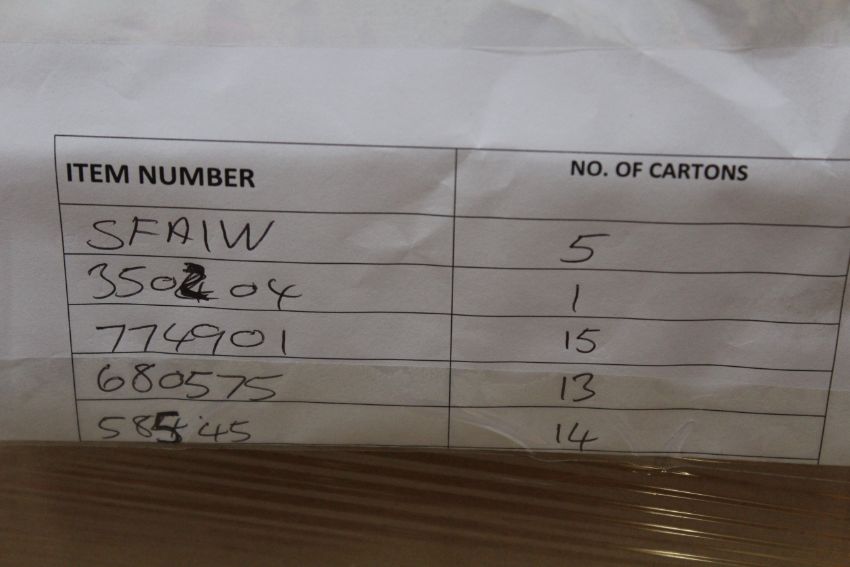 ITEM NUMBER NO. OF CARTONS
SFA1W 5
350204 1
774901 15
680575 13
58545 14